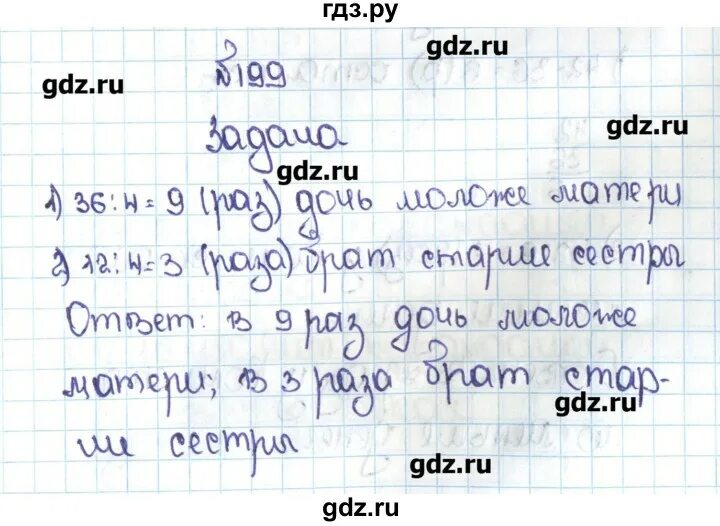 гдз.ру
gdz.ru
№199
gdz.ru
Задача
gdz.ru
gdz.ru
1) 36:4=9 (раз) дочь моложе матери
2) 12:4=3 (раза) брат старше сестры
Ответ: в 9 раз дочь моложе
матери; в 3 раза брат стар-
gdz.ru
ше сестры
gdz.ru
gdz.ru